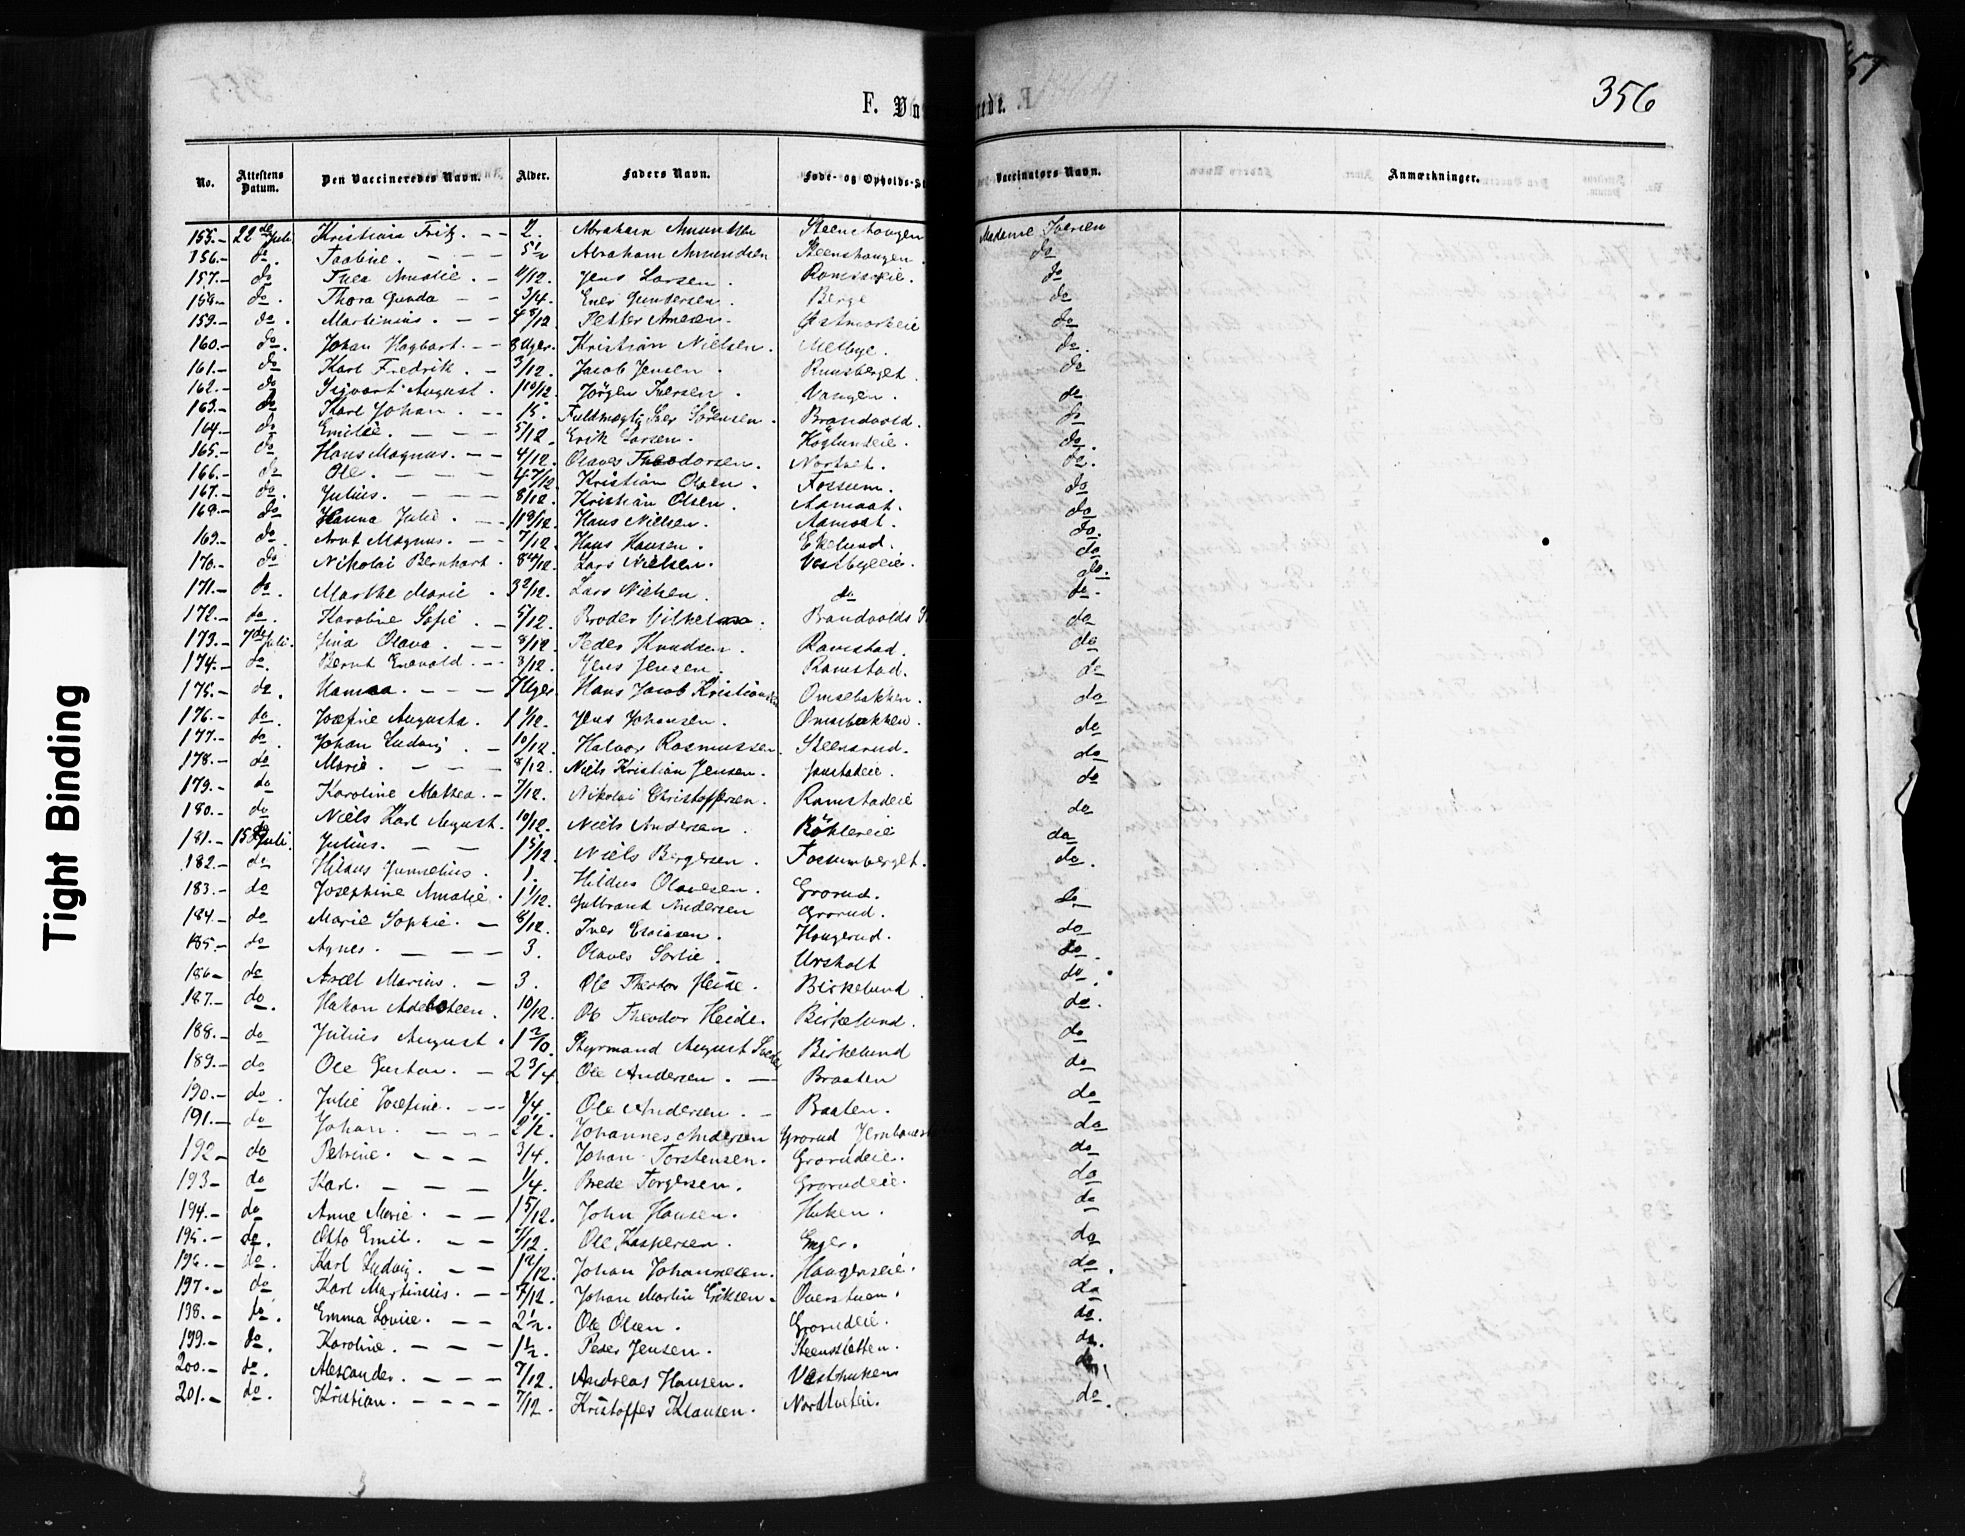 356
F. Vac
rede.
No. Attestens Datum. Den Vaccineredes Navn. Alder. Faders Navn. Føde- og Opholds-St Vaccinators Navn. Anmærkninger.
155.- 22de Juli Kristian Fritz. - - 2. Abraham Amundsen Steenshaugen Madame Iversen
156.- do. - - - 5 1/2 Abraham Amundsen Steenshaugen do
157.- do Thea Amalie. - 4/12. Jens Larsen. do
158.- do. Thora Gunda - - 3/4. Gundersen. Berge do
159.- do. Martinius. - - 4 8/12 Petter Østmarkeie do
160.- do. Johan Hagbart. - - 8 Uger. Kristian Nielsen. Melbye. do.
161.- do. Karl Fredrik. - 3/12. Jacob Jensen. Ruusberget. do
162.- do Sigvart August. 1 10/12. Jørgen Iversen. Vangen. do
163.- do Karl Johan. - - 15. Fuldmægtig Sørensen. Brandvold. do
164.- do Emilie. - - - 5/12. Erik Larsen. Höglundeie. do.
165.- do. Hans Magnus. - - 4/12. Olaves Theodorsen. Nortvet. do.
166.- do Ole. - - - 4 7/12. Kristian Olsen. Fossum. do
167.- do. Julius. - - - 8/12. Kristian Olsen. Aamoat. do
168.- do Hanna Julie. - - 1 9/12. Hans Nielsen. Aamoat. do.
169.- do. Arnt Magnus. - - 7/12. Hans Hansen. Ekelund. do
170.- do Nikolai Bernhart. 8 4/12. Lars Nielsen. Vestbyeeie. do.
171.- do. Marthe Marie. 3 2/12. Lars Nielsen. do do.
172.- do. Karoline Sofie. - 5/12. Broder Brandvolds do
173.- 7de Juli. Gina Olava. - - 8/12. Peder Knudsen. Ramstad. do
174.- do. Bernt Enevold. - - 8/12. Jens Jensen. Ramstad. do
175.- do. - - - 7 Uger. Hans Jacob Kristiansen Omsebakken. do
176.- do. Josefine Augusta. 1 1/12. Jens Johansen. Omsebakken. do
177.- do. Johan Ludvig. - 10/12. Halvor Rasmussen. Steensrud. do
178.- do Marie. - - - 8/12. Niels Kristian Jensen. do
179.- do Karoline Mathea. - 7/12. Nikolai Christoffersen. Ramstadeie do
180.- do Niels Karl August. 10/12. Niels Andersen. Röhlereie do
181.- 15de Juli. Julius. - - 1 5/12. Niels Bergersen. Fossumberget. do.
182.- do Hildus 1. Hildus Olavesen. Grorud. do
183.- do Josephine Amalie. 1 1/12. Gulbrand Andersen Grorud. do
184.- do Marie Sophie. - 8/12. Iver Haugerud. do
185.- do Agnes. - - - 3. Olaves Sørlie. Ursholt do.
186.- do Axel Marius. - 3. Ole Theodor Heide. Birkelund do.
187.- do. Hakon Adelsteen. 10/12. Ole Theodor Heide. Birkelund. do.
188.- do Julius August. 1 Styrmand August Birkelund do
189.- do Ole Gustav. - 2 3/4. Ole Andersen. - Braaten do
190.- do. Julie Josefine. - - 3/4. Ole Andersen. - Braaten. do
191.- do Johan. - - - 2 1/2. Johannes Andersen Grorud Jernbanest do
192.- do Petrine. - - - 3/4. Johan Torstensen. Grorudeie. do
193.- do Karl. - - - 1/4. Brede Torgersen. Grorudeie. do
194.- do Anne Marie. - - 1 5/12. John Hansen. Huken. do
195.- do. Otto Emil. - - 7/12. Ole Kaspersen. Enger. do
196.- do. Karl Ludvig. - - 1 2/12. Johan Johannesen. Haugenseie. do.
197.- do Karl Martinius. - - 7/12. Johan Martin Eriksen. Overstuen. do
198.- do. Emma Lovise. - - 2 1/2. Ole Olsen. Grorudeie. do.
199.- do. Karoline. - - - 1 1/2. Peder Jensen. Steensletten. do.
200.- do. Alexander. - - - 7/12 Andreas Hansen. Vesthuken do
201.- do. Kristian. - - - - 7/12. Kristoffer Klausen. Nordtveteie. do.
Tight Binding